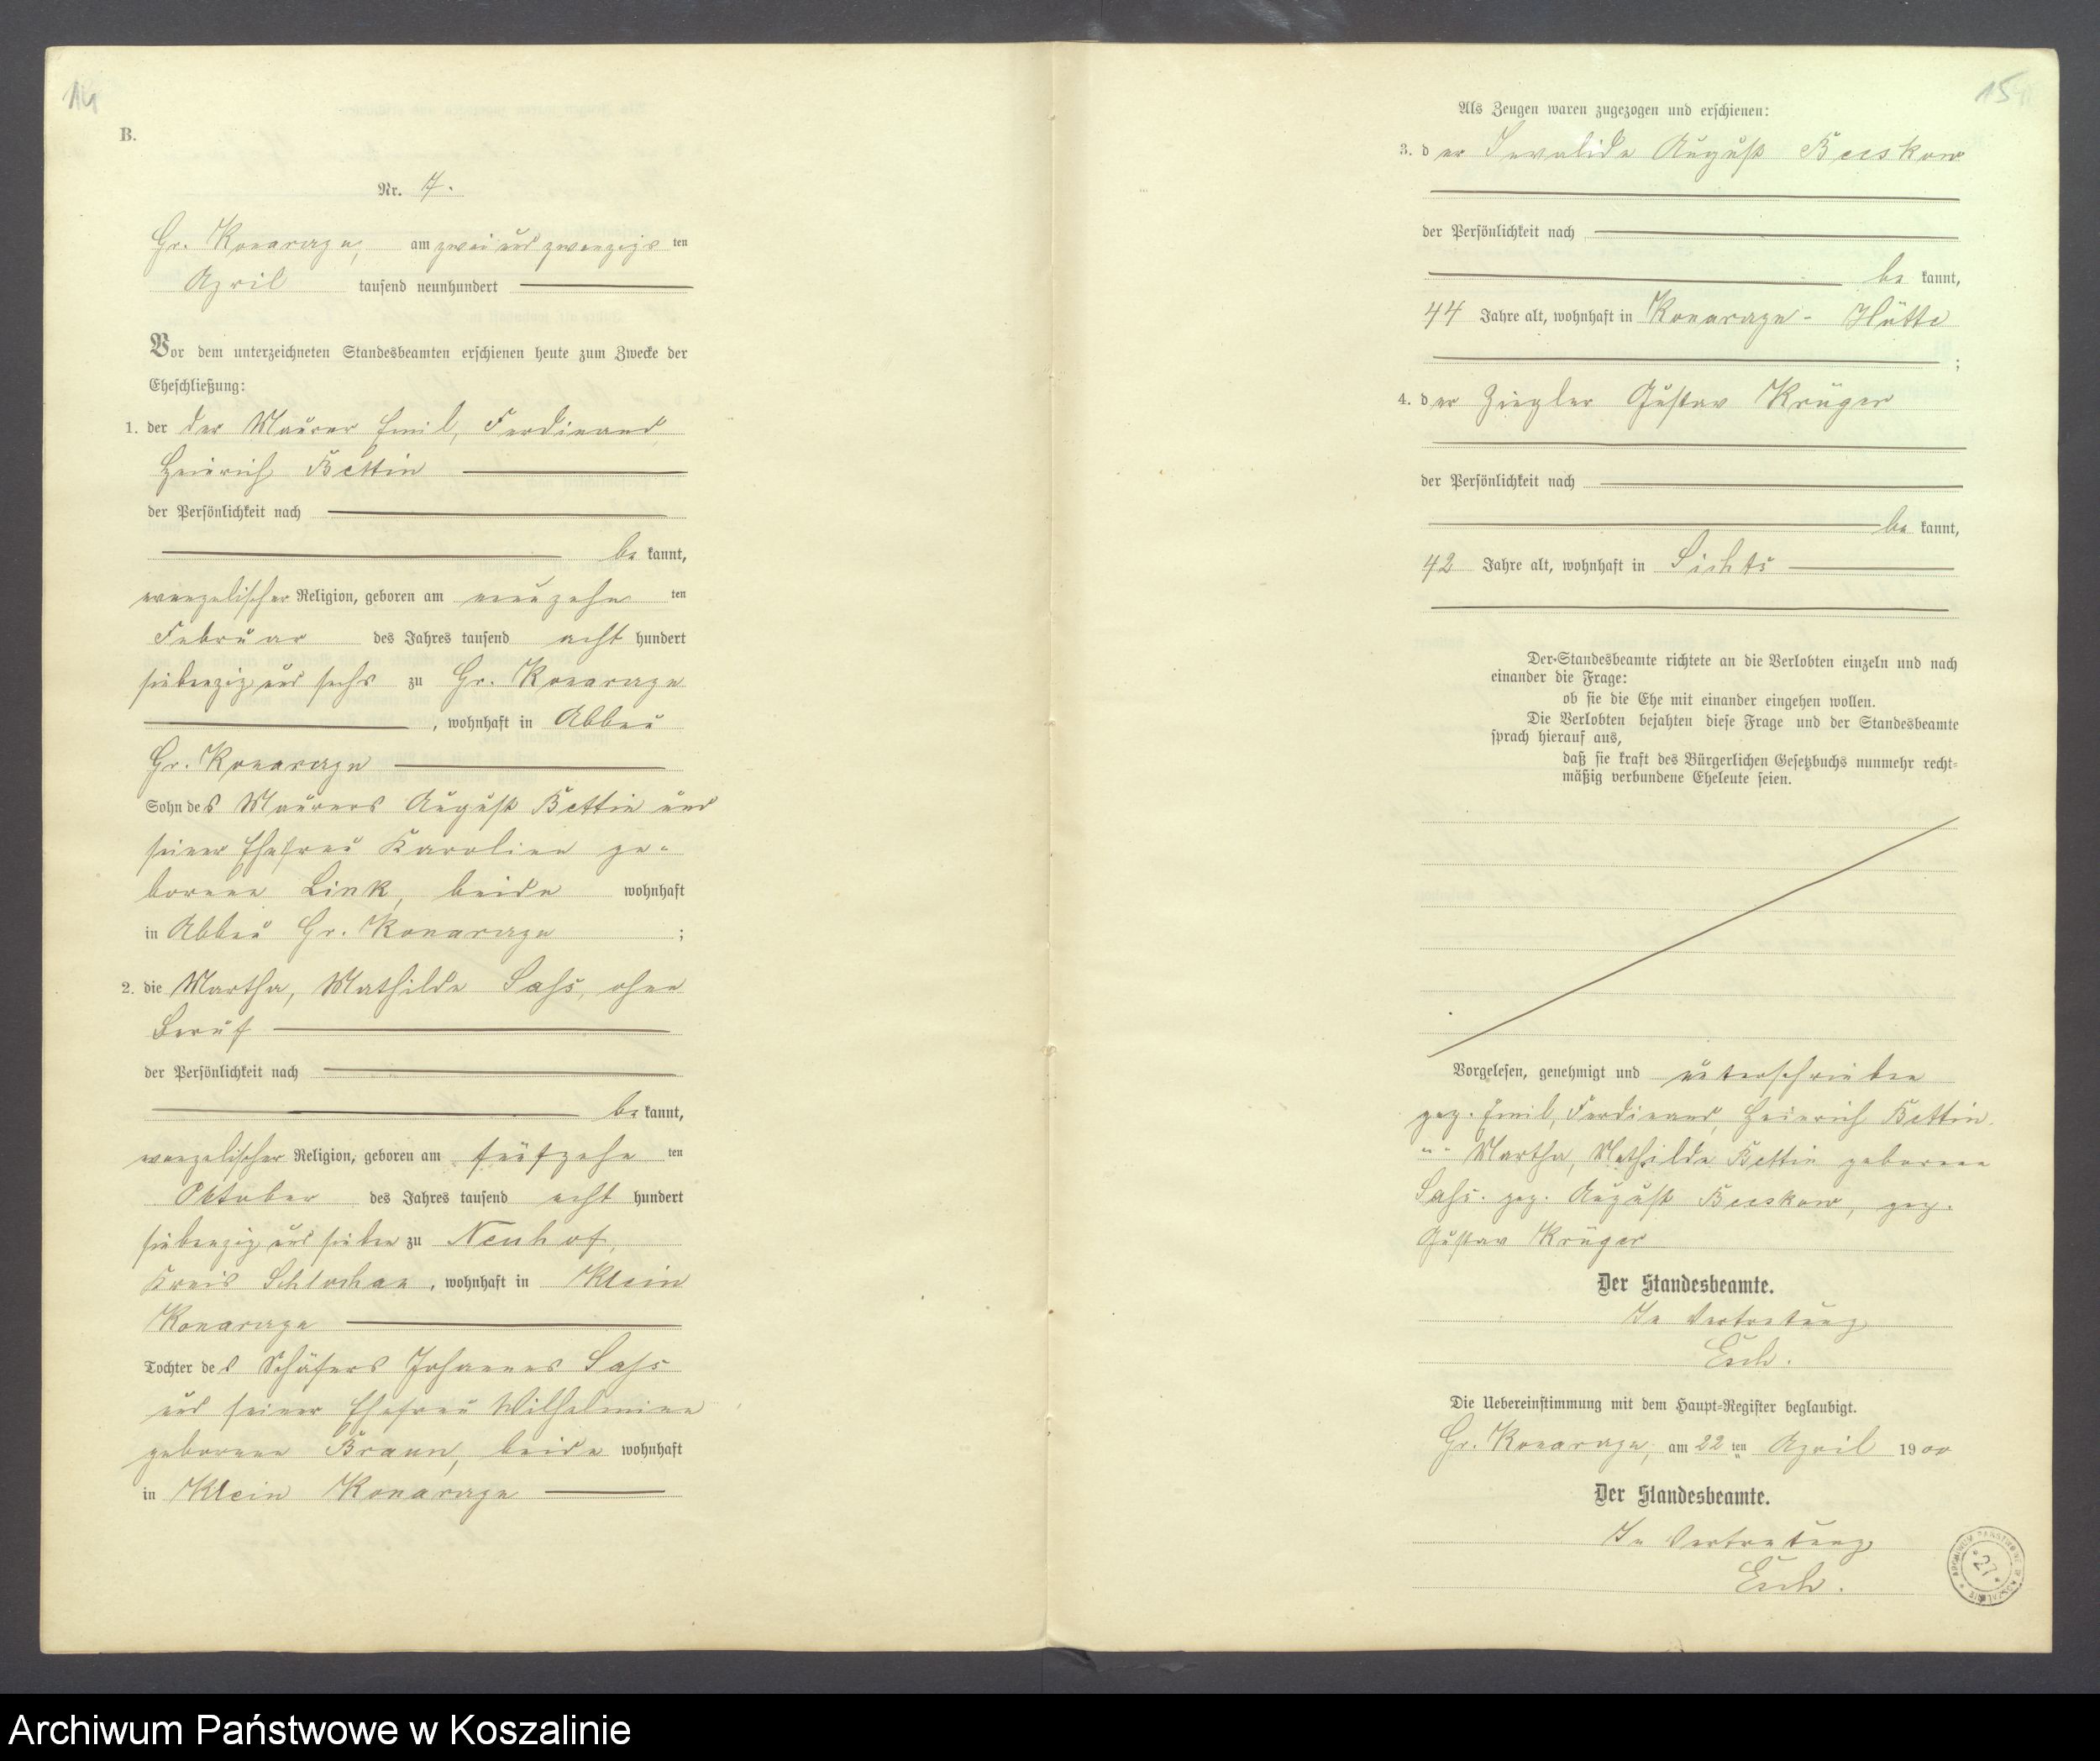 14
B.
Nr. 7.
Gr. Konarczyn, am zwei und zwanzigsten
April tausend neunhundert
Vor dem unterzeichneten Standesbeamten erschienen heute zum Zwecke der
Eheschließung:
1. der der Maurer Emil, Ferdinand,
Heinrich Bettin
der Persönlichkeit nach
be kannt,
evangelischer Religion, geboren am neunzehnten
Februar des Jahres tausend acht hundert
siebenzig und sechs zu Gr. Konarczyn
, wohnhaft in Abbau
Gr. Konarczyn
Sohn des Maurers August Bettin und
seiner Ehefrau Karoline ge-
borene Link, beide wohnhaft
in Abbau Gr. Konarczyn ;
2. die Martha, Mathilde Saß, ohne
Beruf
der Persönlichkeit nach
be kannt,
evangelischer Religion, geboren am fünfzehnten
Oktober des Jahres tausend acht hundert
siebenzig und sieben zu Neuhof,
Kreis Schlochau, wohnhaft in Klein
Konarczyn
Tochter des Schäfers Johannes Saß
und seiner Ehefrau Wilhelmine
geborene Braun, beide wohnhaft
in Klein Konarczyn
15
Als Zeugen waren zugezogen und erschienen:
3. der Invalide August Beeskow
der Persönlichkeit nach
be kannt,
44 Jahre alt, wohnhaft in Konarczyn-Hütte
;
4. der Ziegler Gustav Krüger
der Persönlichkeit nach
be kannt,
42 Jahre alt, wohnhaft in Sichts
Der Standesbeamte richtete an die Verlobten einzeln und nach
einander die Frage:
ob sie die Ehe mit einander eingehen wollen.
Die Verlobten bejahten diese Frage und der Standesbeamte
sprach hierauf aus,
daß sie kraft des Bürgerlichen Gesetzbuchs nunmehr recht=
mäßig verbundene Eheleute seien.
Vorgelesen, genehmigt und unterschrieben
gez. Emil, Ferdinand, Heinrich Bettin.
Martha, Mathilde Bettin geborene
Saß. gez. August Beeskow, gez.
Gustav Krüger
Der Standesbeamte.
In Vertretung
Esch.
Die Uebereinstimmung mit dem Haupt=Register beglaubigt.
Gr. Konarczyn, am 22 ten April 1900
Der Standesbeamte.
In Vertretung
Esch.
ARCHIWUM PAŃSTWOWE W KOSZALINIE
* 27 *
Archiwum Państwowe w Koszalinie